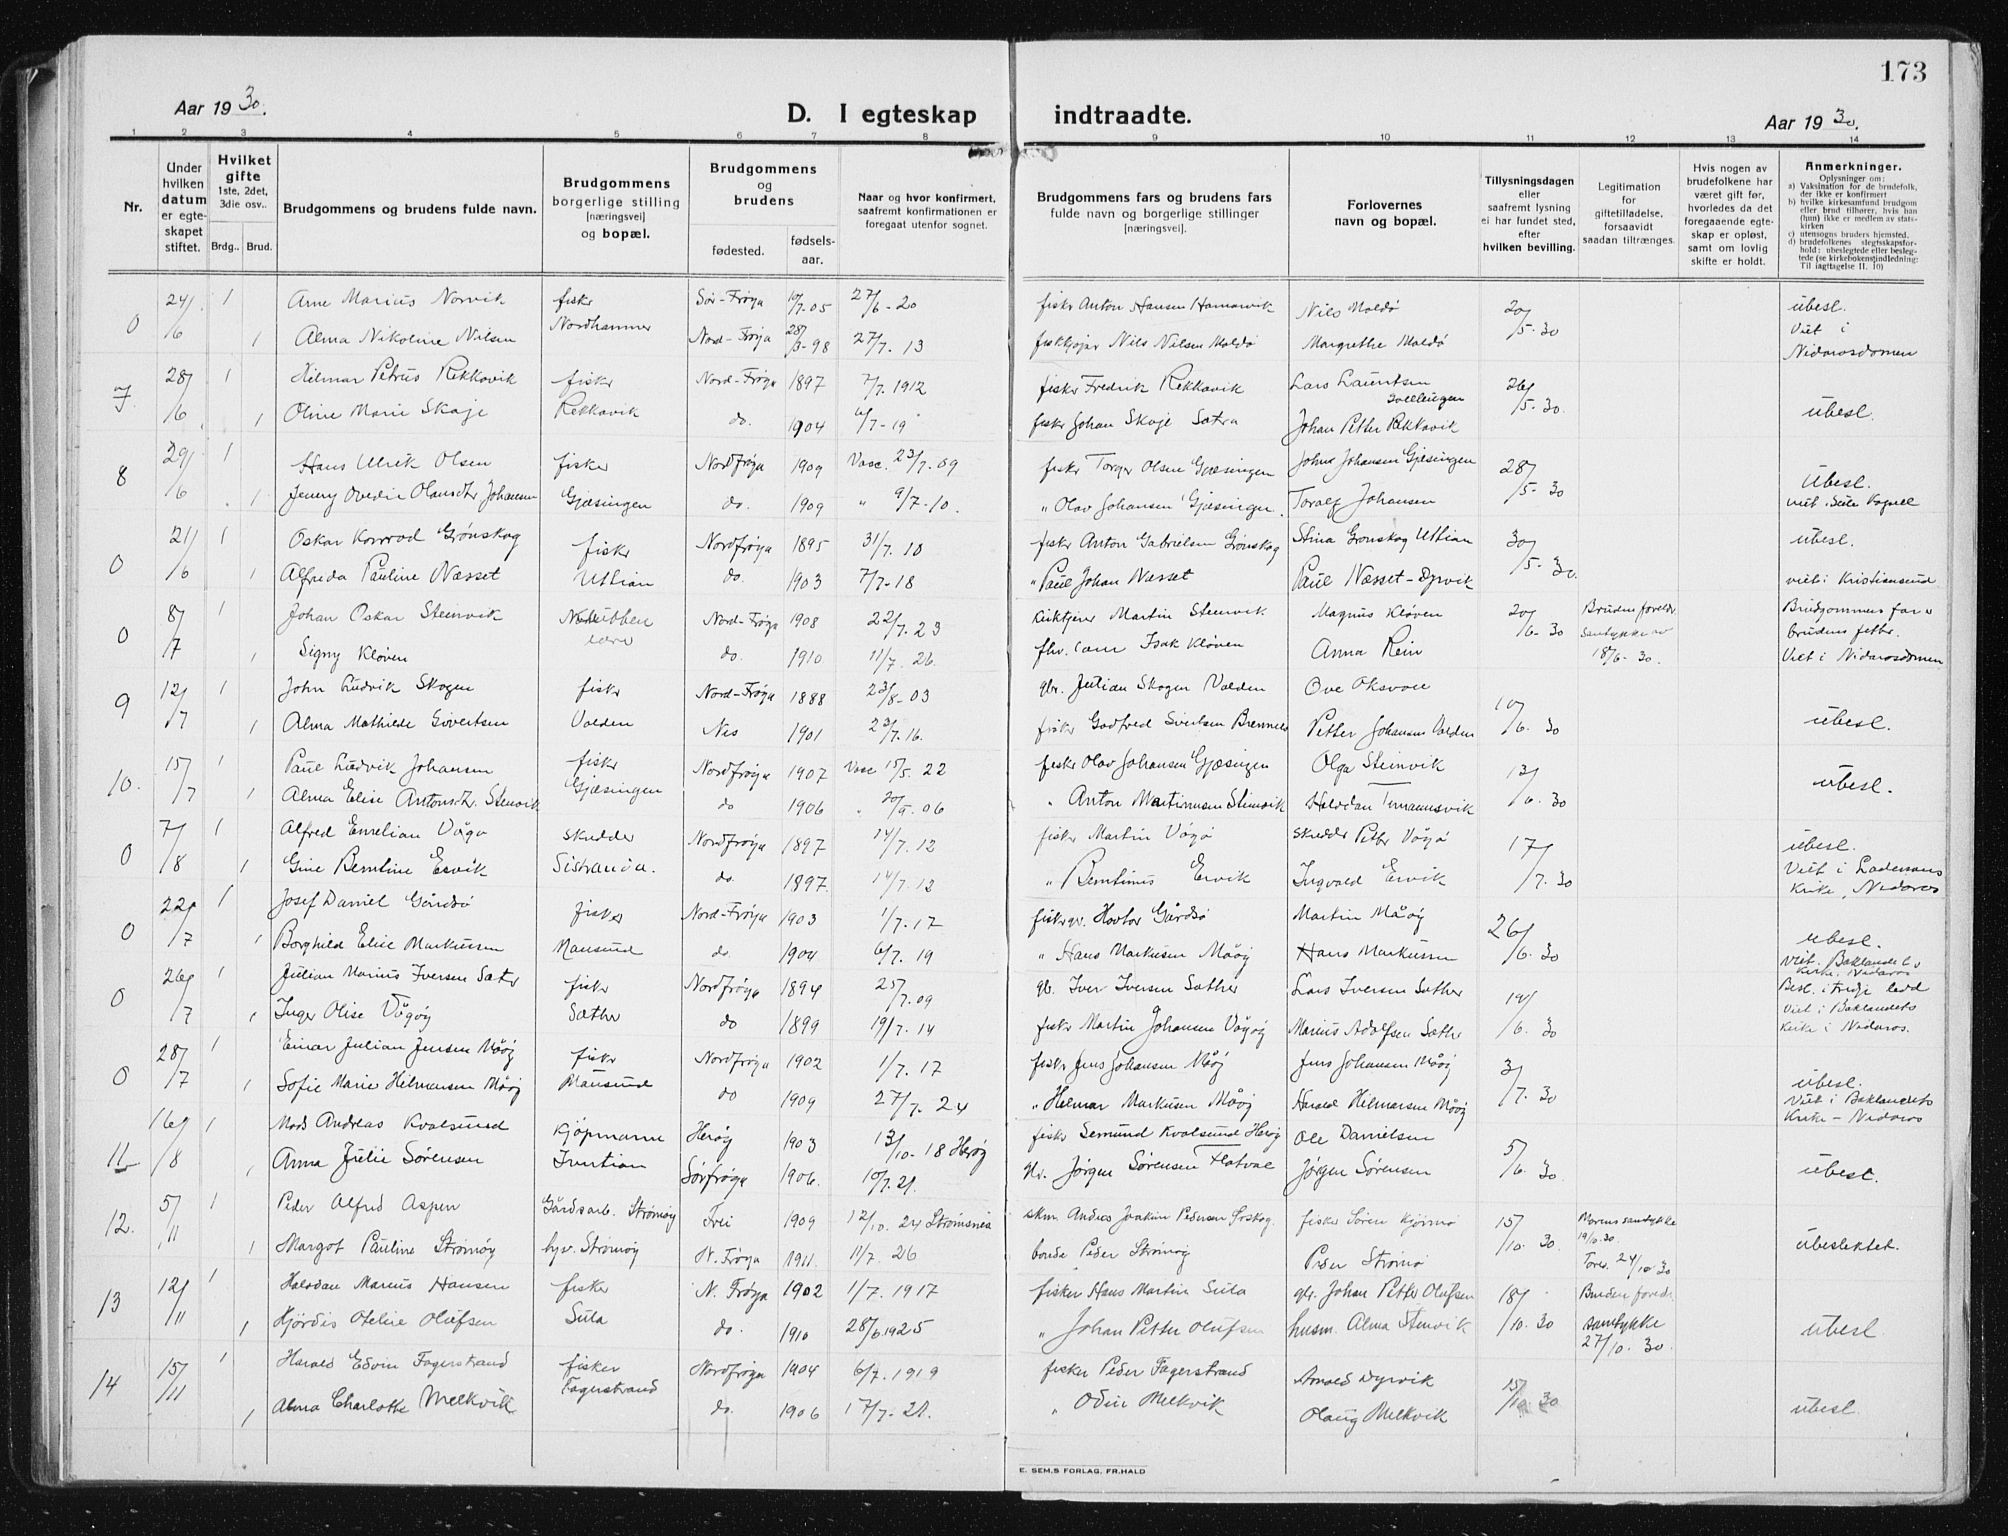 173
Aar 1930.
D. I egteskap indtraadte.
Aar 1930.
1 2 3 4 5 6 7 8 9 10 11 12 13 14
Nr.
Under hvilken datum er egteskapet stiftet.
Hvilket gifte 1ste, 2det, 3die osv..
Brdg.. Brud.
Brudgommens og brudens fulde navn.
Brudgommens borgerlige stilling [næringsvei] og bopæl.
Brudgommens og brudens
fødested.
fødselsaar.
Naar og hvor konfirmert, saafremt konfirmationen er foregaat utenfor sognet.
Brudgommens fars og brudens fars fulde navn og borgerlige stillinger [næringsvei].
Forlovernes navn og bopæl.
Tillysningsdagen eller saafremt lysning ei har fundet sted, efter hvilken bevilling.
Legitimation for giftetilladelse, forsaavidt saadan tiltrænges.
Hvis nogen av brudefolkene har været gift før, hvorledes da det foregaaende egteskap er opløst, samt om lovlig skifte er holdt.
Anmerkninger.
Oplysninger om:
a) Vaksination for de brudefolk, der ikke er konfirmert
b) hvilke kirkesamfund brudgom eller brud tilhører, hvis han (hun) ikke er medlem av statskirken
c) utensogns bruders hjemsted.
d) brudefolkenes slegtsskapsforhold: ubeslegtede eller beslegtede (se kirkebokens indledning: Til iagttagelse II. 10)
0 24/6 1 Arne Marius Norvik fisker Sør-Frøya 10/7-05 27/6-20 fisker Anton Hansen Hamarvik Nils Moldø 20/5-30 ubesl.
1 Alma Nikoline Nilsen Nordhammer Nord-Frøya 28/3-98 27/7. 13 Nils Nilsen Moldø Margrethe Moldø Viet i Nidarosdomen
7. 28/6 1 Hilmar Petrus Rekkavik fisker Nord-Frøya 1897 7/7. 1912 fisker Fredrik Rekkavik Lars Lauritsen 26/5-30.
1 Oline Marie Skaje Rekkavik do. 1904 6/7-19 fisker Johan Skaje Sætra Johan Petter Rekkavik ubesl.
8 29/6 1 Hans Ulrik Olsen fisker Nordfrøya 1909 Vacc. 23/7.09 fisker Torger Olsen Gjæsingen Johan Johansen Gjæsingen 28/5-30 ubesl.
1 Jenny Ovedie Olausdtr Johansen Gjæsingen do. 1909 " 9/7-10. " Olav Johansen Gjæsingen. Toralf Johansen
0 21/6 1 Oskar Konrad Grønskag fisker Nordfrøya 1895 31/7. 10 fisker Anton Gabrielsen Grønskag Stina Grønskag Uttian 30/5-30. ubesl.
1 Alfreda Pauline Næsset Uttian do. 1903 7/7-18 " Paul Johan Næsset Paul Næsset-Dyrvik viet i Kristiansund
0 8/7 1 Johan Oskar Steinvik Nord-Frøya 1908 22/7. 23 Kirketjener Martin Steinvik Magnus Kløven 20/6-30 Brudens foreldr. samtykke av 18/6-30. Brudgommens far er brudens fetter.
1 Signy Kløven do. 1910 11/7. 26. Isak Kløven Anna Rein Viet i Nidarosdomen
9 12/7 1 John Ludvik Skagen fisker Nord-Frøya 1888 23/8-03 gbr. Julian Skagen Valden Ove Oksvoll 10/6. 30
1 Alma Mathilde Sivertsen Valden Nes 1901 23/7. 16. fisker Godfred Sivertsen Petter Johansen Valden ubesl.
10. 15/7 1 Paul Ludvik Johansen fisker Nordfrøya 1907 Vacc 15/5. 22 fisker Olav Johansen Gjæsingen Olga Steinvik 13/6. 30 ubesl.
1 Alma Elise Antonsdtr. Stenvik Gjæsingen do 1906 " 20/9. 06 " Anton Martinusen Steinvik Halvdan
0 7/8 1 Alfred Emelian Vågø skredder Nordfrøya 1897 14/7. 12 fisker Martin Vågø skredder Petter Vågø 17/7. 30 ubesl.
1 Gine Berntine Ervik Sistranda. do. 1897 14/7. 12 " Berntinus Ervik Ingvald Ervik Viet i Lademoens Kirke, Nidaros
0 22/7 1 Josef Daniel Gårdsø fisker Nord-Frøya 1903 1/7. 17 Gårdsø Martin Måøy 26/6. 30 ubesl.
1 Borghild Elise Markusen Mausund do. 1904 6/7. 19 " Hans Markusen Måøy Hans Markusen viet. Baklandets Kirke. Nidaros
0 26/7 1 Julian Marius Iversen Sæter fisker Nordfrøya 1894 25/7. 09 gb. Iver Iversen Sæther Lars Iversen Sæther 19/6. 30 Besl. i tredje ledd
1 Inger Olise Vågøy Sæther do 1899 19/7. 14 fisker Martin Johansen Vågøy Marius Adolfsen Sæther Viet i Baklandets Kirke i Nidaros.
0 28/7 1 Einar Julian Jensen Måøy fisker Nordfrøya 1902 1/7. 17 fisker Jens Johansen Måøy Jens Johansen Måøy 3/7. 30 ubesl.
1 Sofie Marie Hilmarsen Måøy Mausund do 1909 27/7. 24 " Helmar Markusen Måøy Harald Hilmarsen Måøy Viet i Baklandets Kirke - Nidaros
11 16/8 1 Mads Andreas Kvalsund Kjøpmann Herøy 1903 13/10-18 Herøy fisker Semund Kvalsund Herøy Ole Danielsen 5/6. 30
1 Anna Julie Sørensen Inntian Sørfrøya 1906. 10/7. 21. Jørgen Sørensen Flatval Jørgen Sørensen ubesl.
12. 5/11 1 Peder Alfred Aspen Gårdsarb. Strømøy Frei 1909 12/10. 24 Strømsnes skm. Andreas Joakim Pedersen Ørskog. fisker Søren Kjørmo 15/10. 30 Morens samtykke 19/10.30. ubeslektet.
1 Margot Pauline Strømøy Strømøy N. Frøya 1911. 11/7. 26 bonde Peder Strømøy Peder Strømø 24/10 30
13 12/11 1 Halvdan Marius Hansen fisker N. Frøya 1902 1/7. 1917 fisker Hans Martin Sula gbr. Johan Petter Olufsen 18/10. 30 Brudens foreldr. samtykke 27/10. 30.
1 Hjørdis Otelie Olufsen Sula do. 1910 28/6.1925 " Johan Petter Olufsen husm. Alma Stenvik ubesl.
14 15/11 1 Harald Edvin Fagerstrand fisker Nordfrøya 1904 6/7. 1919 fisker Peder Fagerstrand Arnold Dyrvik 15/10 30
1 Alma Charlotte Melkvik Fagerstrand do. 1906 17/7-21. " Odin Melkvik Olaug Melkvik ubesl.
E. SEM.S FORLAG, FR.HALD